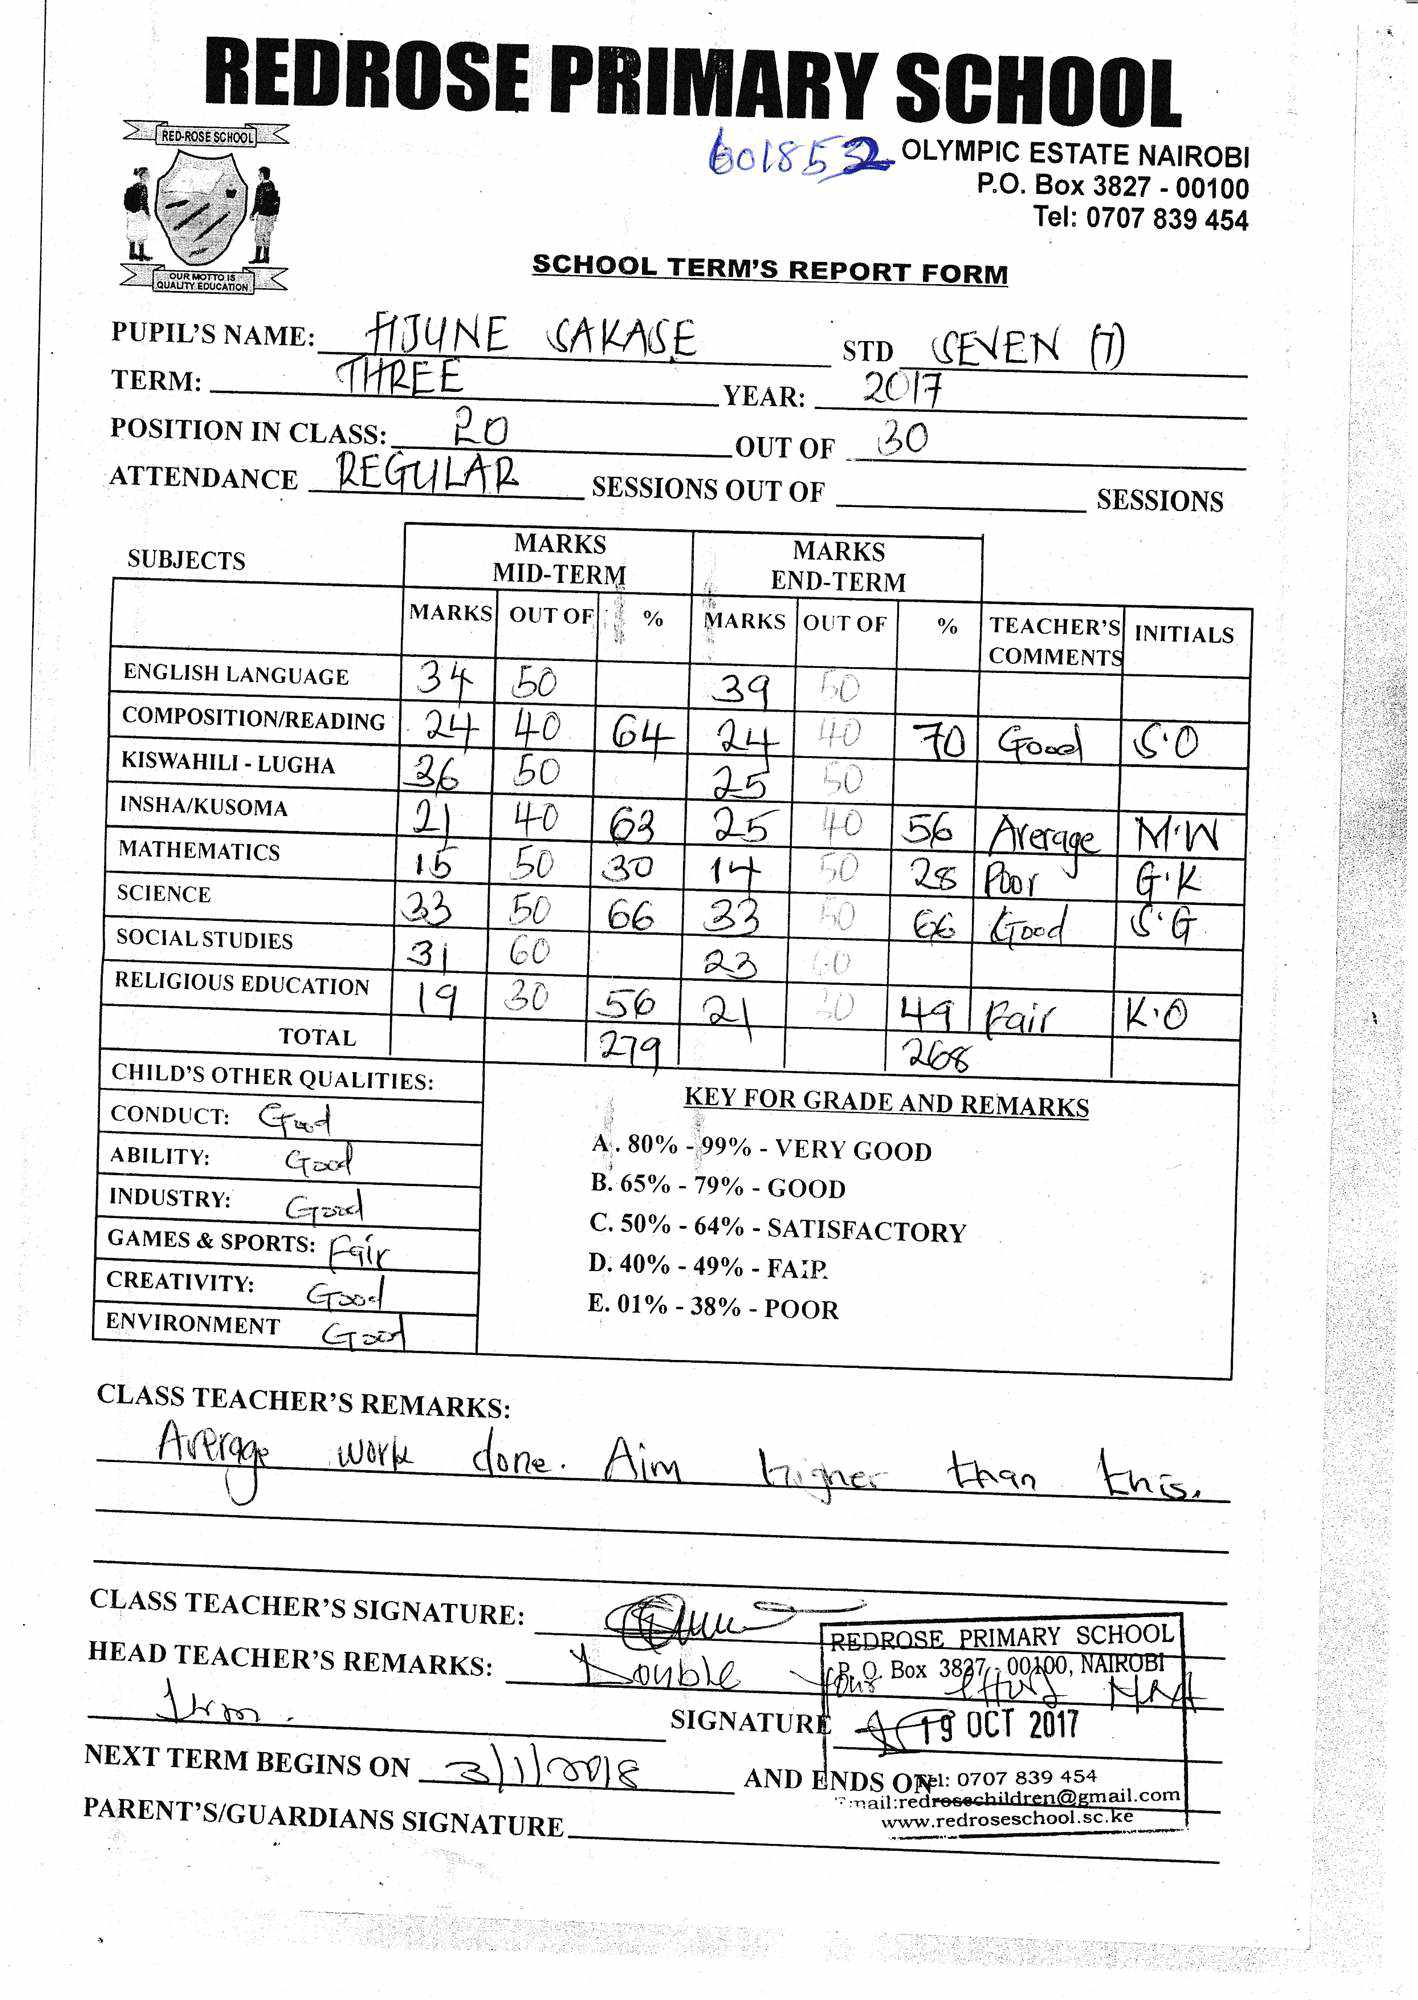 REDROSE PRIMARY SCHOOL
RED-ROSE SCHOOL
OUR MOTTO IS
QUALITY EDUCATION
6018532 OLYMPIC ESTATE NAIROBI
P.O. Box 3827 - 00100
Tel: 0707 839 454
SCHOOL TERM'S REPORT FORM
PUPIL'S NAME: FIJUNE SAKASE STD SEVEN (7)
TERM: THREE YEAR: 2017
POSITION IN CLASS: 20 OUT OF 30
ATTENDANCE REGULAR SESSIONS OUT OF SESSIONS
SUBJECTS MARKS MID-TERM MARKS END-TERM
MARKS OUT OF % MARKS OUT OF % TEACHER'S COMMENTS INITIALS
ENGLISH LANGUAGE 34 50 39 50
COMPOSITION/READING 24 40 64 24 40 70 Good S.O
KISWAHILI - LUGHA 36 50 25 50
INSHA/KUSOMA 21 40 63 25 40 56 Average M.W
MATHEMATICS 15 50 30 14 50 28 Poor G.K
SCIENCE 33 50 66 33 50 66 Good S.G
SOCIAL STUDIES 31 60 23 60
RELIGIOUS EDUCATION 19 30 56 21 30 49 Fair K.O
TOTAL 279 268
CHILD'S OTHER QUALITIES:
CONDUCT: Good
ABILITY: Good
INDUSTRY: Good
GAMES & SPORTS: Fair
CREATIVITY: Good
ENVIRONMENT Good
KEY FOR GRADE AND REMARKS
A. 80% - 99% - VERY GOOD
B. 65% - 79% - GOOD
C. 50% - 64% - SATISFACTORY
D. 40% - 49% - FAIR
E. 01% - 38% - POOR
CLASS TEACHER'S REMARKS:
Average work done. Aim higher than this.
CLASS TEACHER'S SIGNATURE:
HEAD TEACHER'S REMARKS: Double your efforts next
term.
SIGNATURE
REDROSE PRIMARY SCHOOL
P. O. Box 3827 - 00100, NAIROBI
19 OCT 2017
Tel: 0707 839 454
Email:redrosechildren@gmail.com
www.redroseschool.sc.ke
NEXT TERM BEGINS ON 3/1/2018 AND ENDS ON
PARENT'S/GUARDIANS SIGNATURE